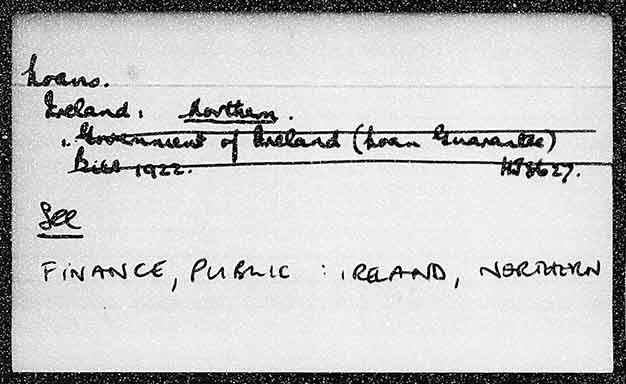 Loans.
Ireland, Northern.
Government of Ireland (Loan Guarantee)
Bill 1922. 
See
FINANCE, PUBLIC : IRELAND, NORTHERN